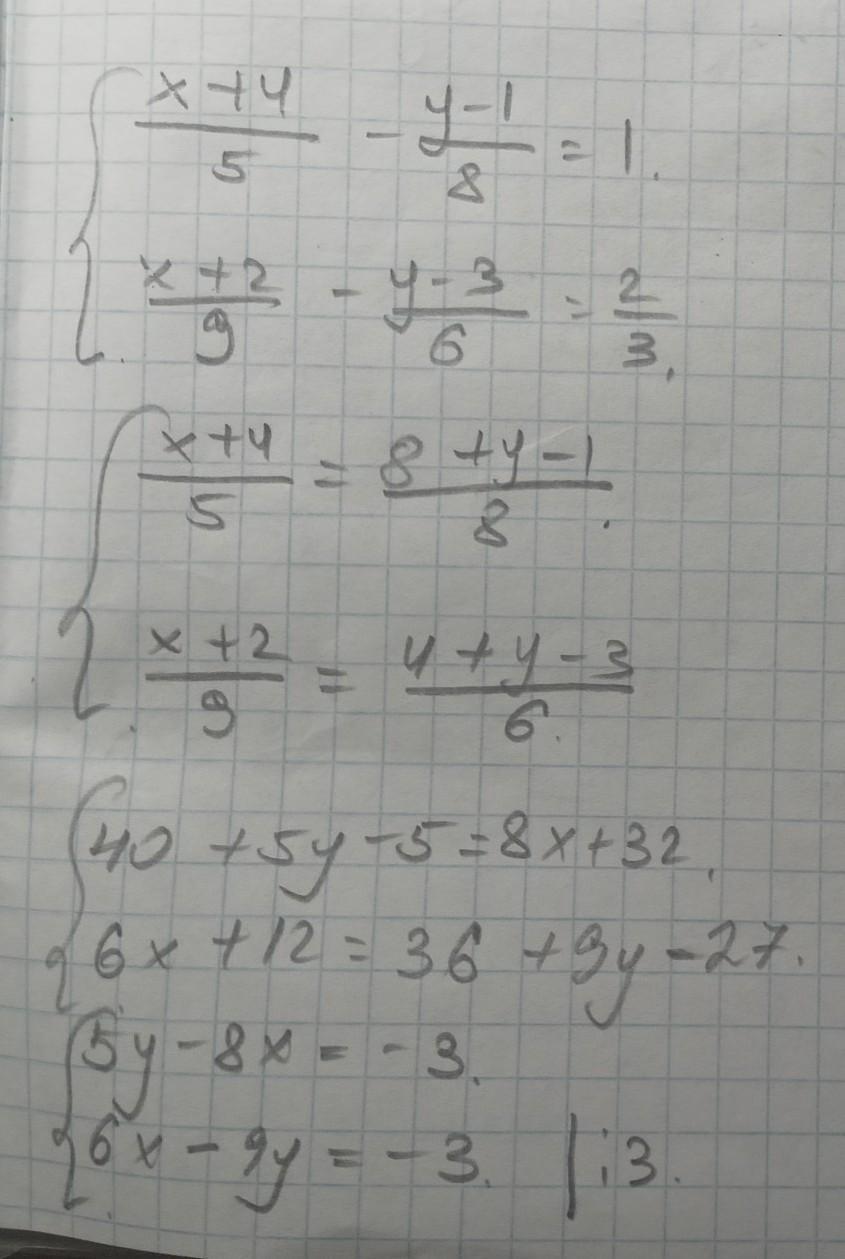 { (x+4)/5 - (y-1)/8 = 1.
(x+2)/9 - (y-3)/6 = 2/3.
{ (x+4)/5 = (8+y-1)/8.
(x+2)/9 = (4+y-3)/6.
{ 40 +5y-5=8x+32.
6x +12 = 36 +9y-27.
{ 5y-8x = -3.
6x-9y = -3. |:3.